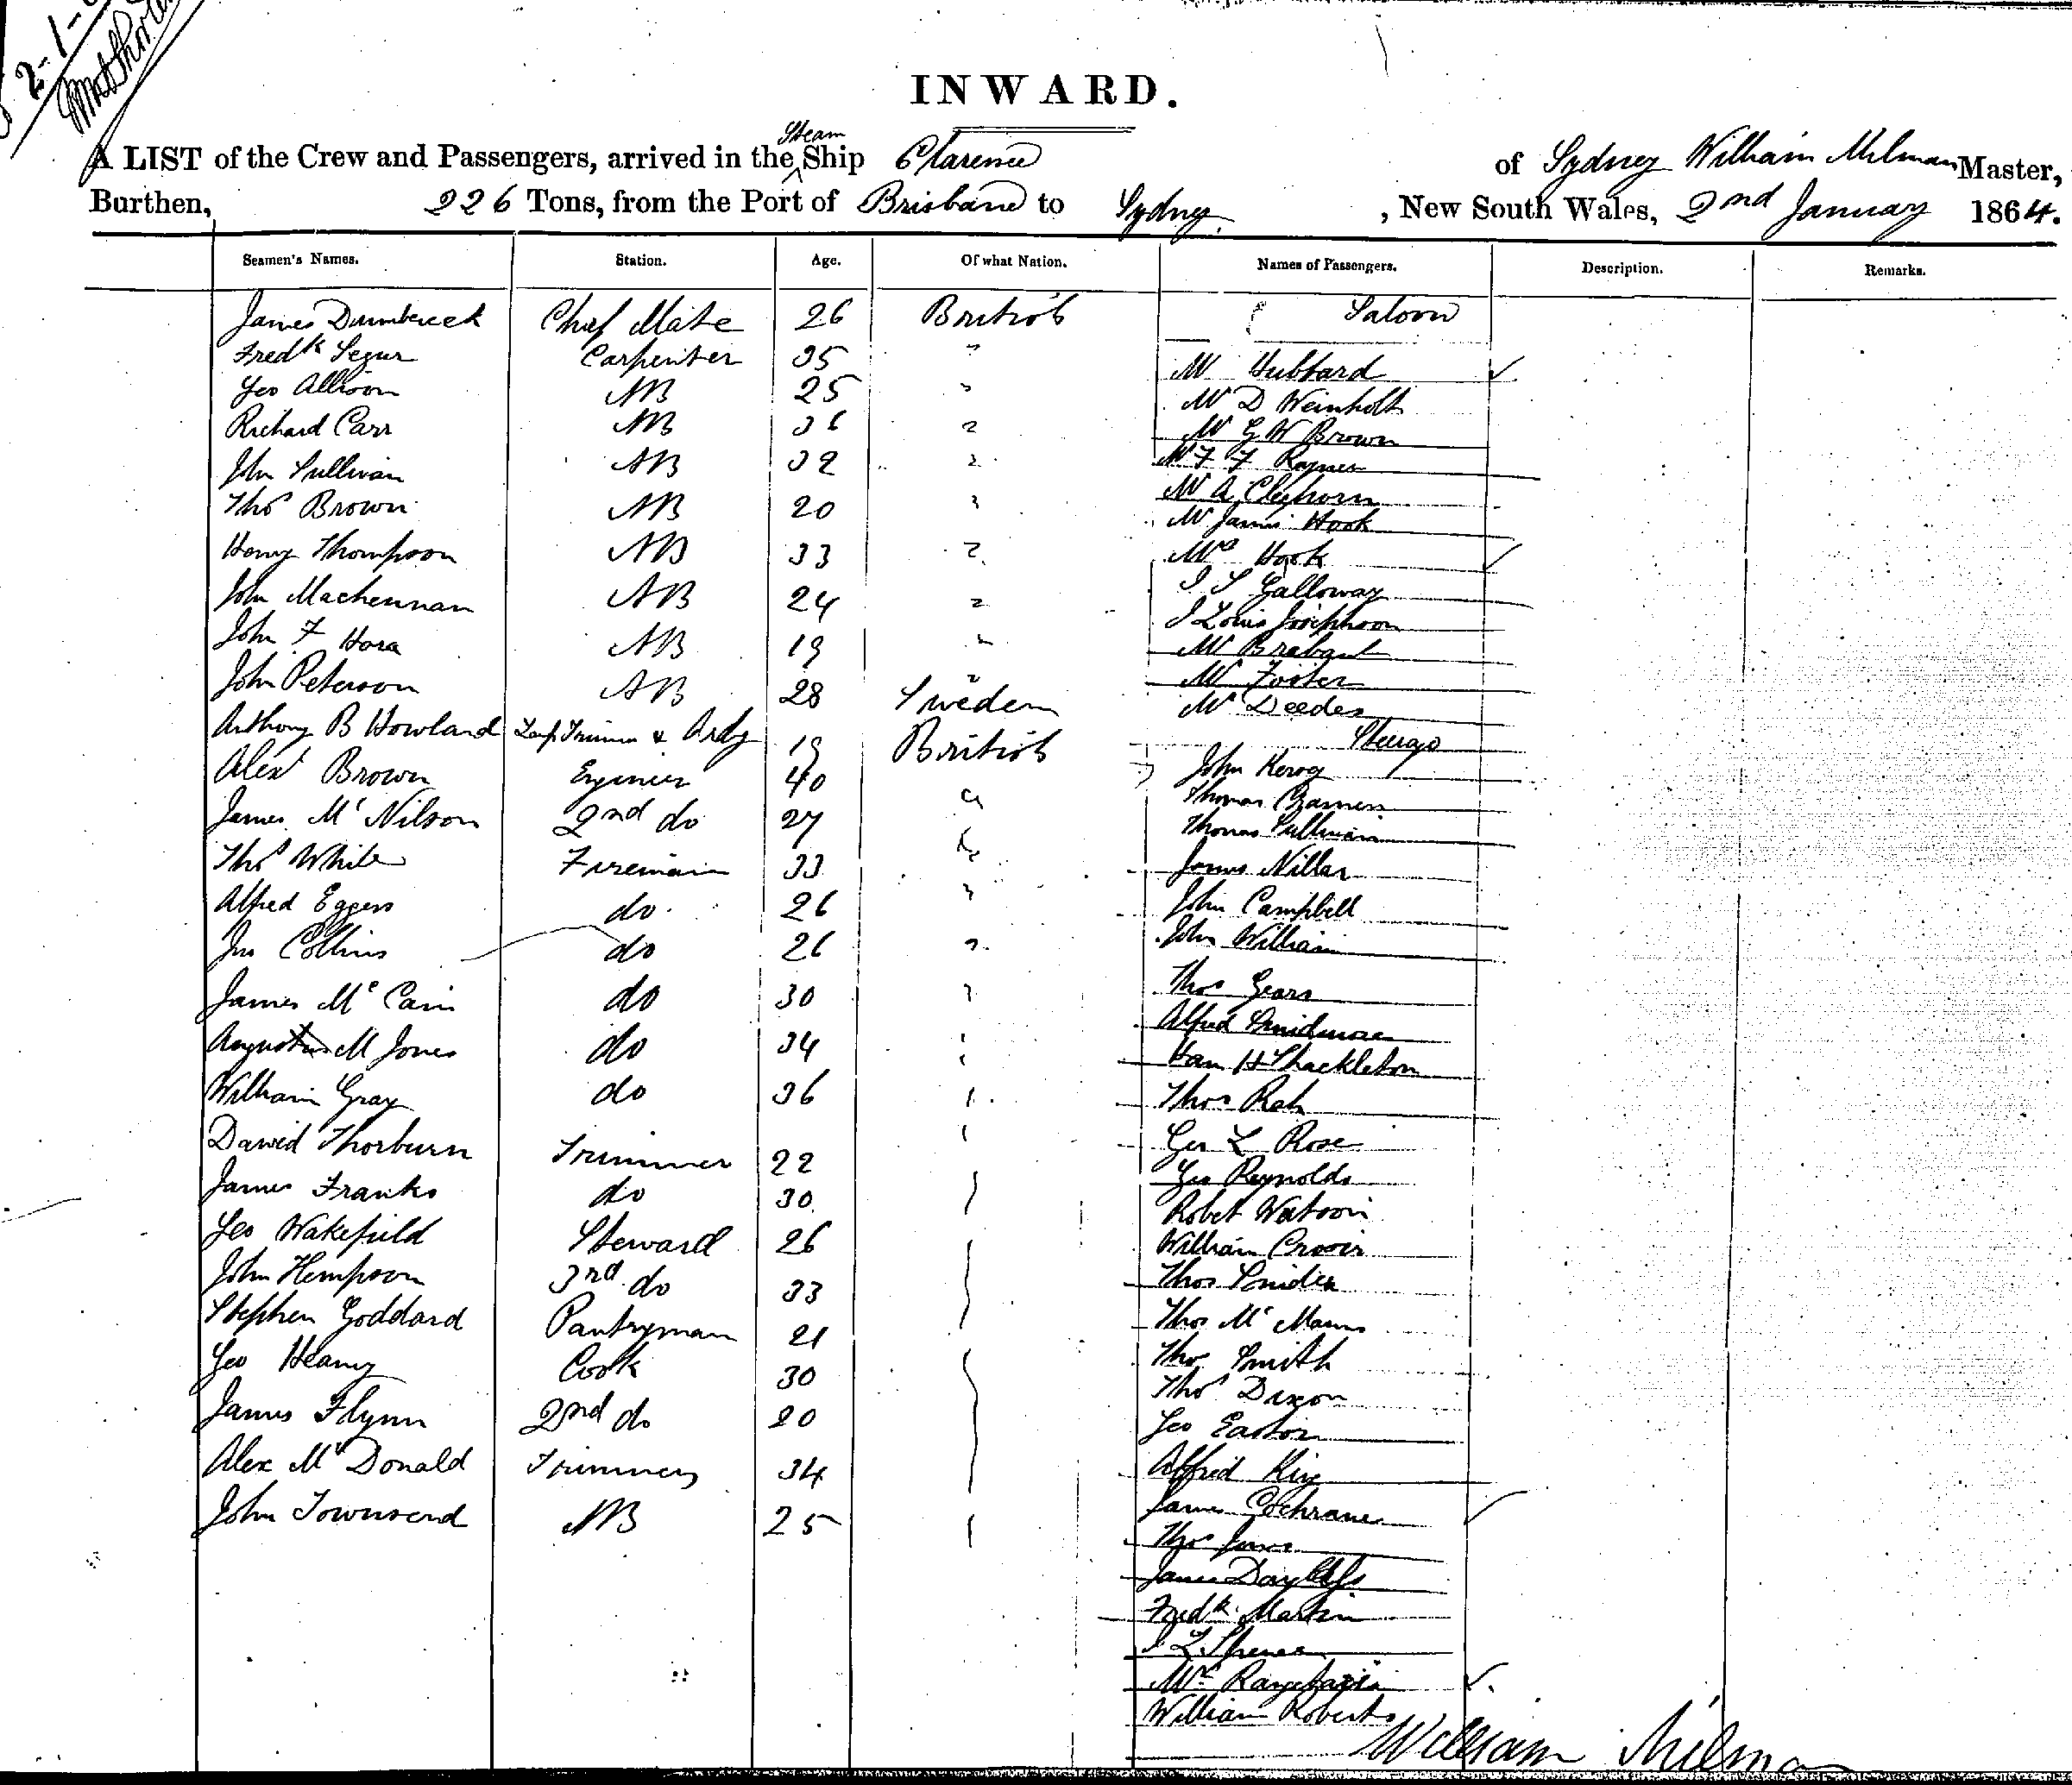 2-1-
INWARD.
A LIST of the Crew and Passengers, arrived in the Steam Ship Clarence of Sydney William Milman Master,
Burthen, 226 Tons, from the Port of Brisbane to Sydney, New South Wales, 2nd January 1864.
Seamen's Names. Station. Age. Of what Nation. Names of Passengers. Description. Remarks.
James Chief Mate 26 British Saloon
Fredk Segur Carpenter 35 "
Mr Hubbard
Geo Allison AB 25 "
Mr D Weinholt
Richard Carr AB 36 "
Mr G W Brown
John Sullivan AB 32 "
Mr F F Rayner
Mr A Cleghorn
Thos Brown AB 20 "
Mr James Hook
Henry Thompson AB 33 "
Mrs Hook
John AB 24 "
Galloway
Louis Josephson
John F Hora AB 19 "
Mr Brabant
John Peterson AB 28 Sweden
Mr Foster
Mr Deedes
Anthony B Howland Lamp Trimmer & Ordy 19 British
Alexr Brown Engineer 40 "
John
James Mc Nilson 2nd do 27 "
Thomas
Thomas Sullivan
Thos White Fireman 33 "
James Millar
Alfred Eggers do 26 "
John Campbell
Jno Collins do 26 "
John William
James Mc Cain do 30 "
Thos Gears
Alfred
M Jones do 34 "
H Shackleton
William Gray do 36 "
Thos
David Thorburn Trimmer 22 "
Geo L Rose
James Franks do 30 "
Geo Reynolds
Robet Watson
Geo Wakefield Steward 26
William
John Hempson 3rd do 33
Thos
Stephen Goddard Pantryman 21
Thos Mc Manus
Geo Heany Cook 30
Thos Smith
Thos Dixon
James Flynn 2nd do 20
Geo Easton
Alex Mc Donald Trimmer 34
Alfred King
John Townsend AB 25
James Cochrane
Thos Jones
James
Fredk Martin
Mr
William Roberts
William Milman